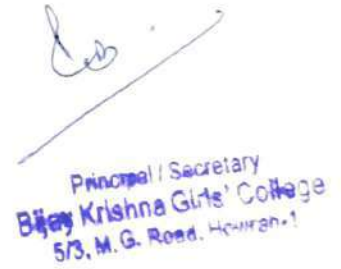 Principal / Secretary
Bijay Krishna Girls' College
5/3, M. G. Road, Howrah-1